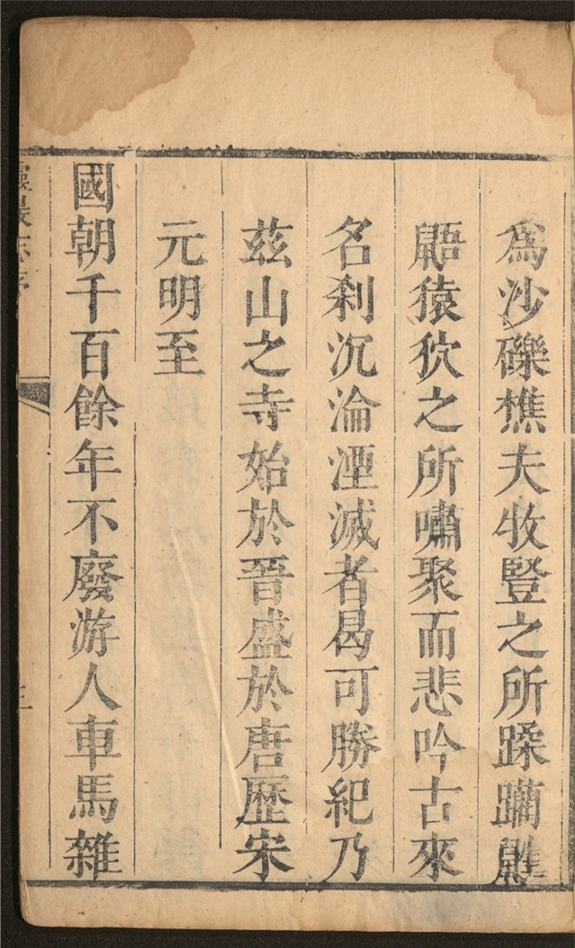 爲沙礫樵夫牧豎之所蹂躪鼪
鼯猿狖之所嘯聚而悲吟古來
名剎沉淪湮滅者曷可勝紀乃
茲山之寺始於晉盛於唐歷宋
元明至
國朝千百餘年不廢游人車馬雜